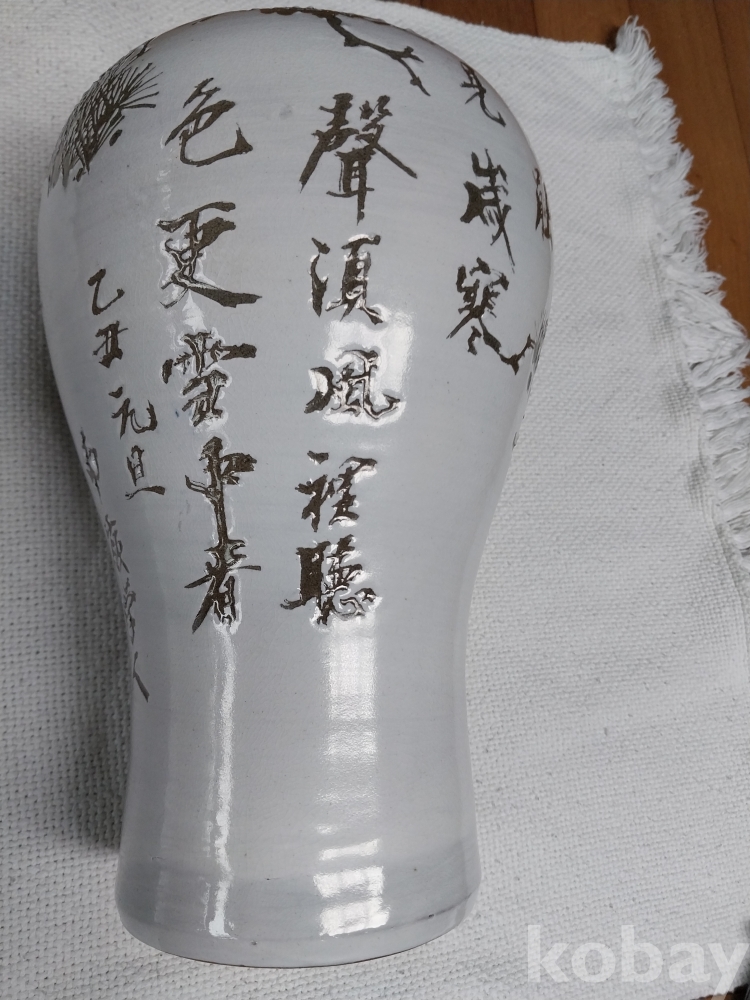 見歲寒
聲須風裡聽
色更雪中看
乙丑元旦
kobay